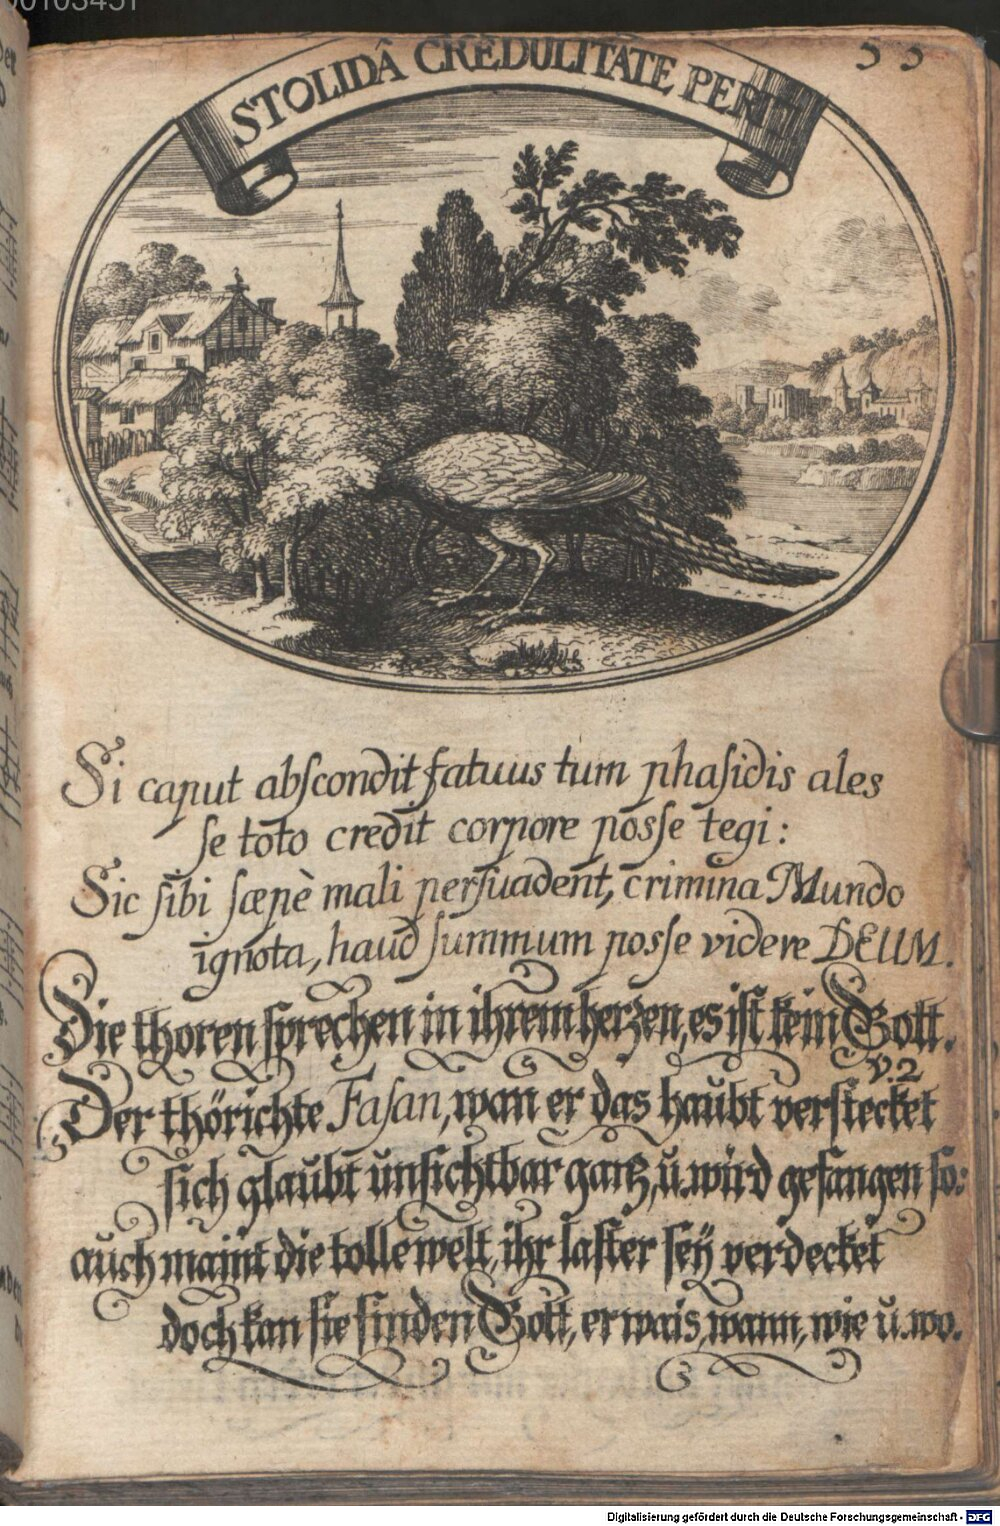 00103451
55
STOLIDÂ CREDULITATE PERIT
Si caput abſcondit fatuus tum phaſidis ales
ſe toto credit corpore poſse tegi:
Sic ſibi ſæpè mali perſuadent, crimina Mundo
ignota, haud ſummum poſse videre DEUM.
Die thoren ſprechen in ihrem herzen, es iſt kein Gott.
v. 2
Der thörichte Faſan, wan er das haŭbt verſtecket
ſich glaŭbt ŭnſichtbar gantz, ŭ. wird gefangen ſo:
aŭch maint die tolle welt, ihr laſter ſeÿ verdecket
doch kan ſie finden Gott, er wais, wann, wie ŭ. wo.
Digitalisierung gefördert durch die Deutsche Forschungsgemeinschaft - DFG